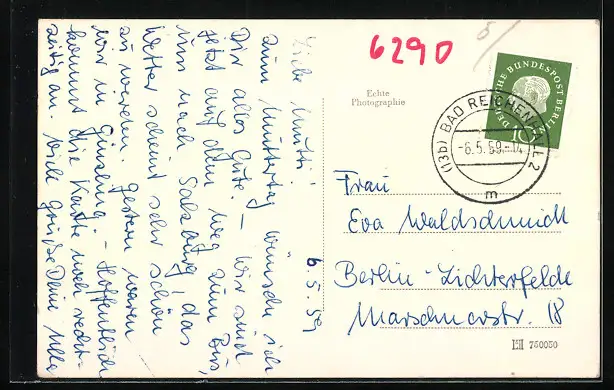 6290
5
Echte
Photographie
DEUTSCHE BUNDESPOST BERLIN
10
(13b) BAD REICHENHALL 2
-6.5.59.-14
m
6.5.59
Liebe Mutti!
Zum Muttertag wünsche ich
Dir alles Gute. - Wir sind
jetzt auf dem Weg zum Bus,
um nach Salzburg! das
Wetter scheint sehr schön
zu werden. Gestern waren
wir in Ginzling. - Hoffentlich
kommt die Karte noch recht-
zeitig an. Viele Grüße Deine Ulla
Frau
Eva Waldschmidt
Berlin-Lichterfelde
Marschnerstr. 18
750050